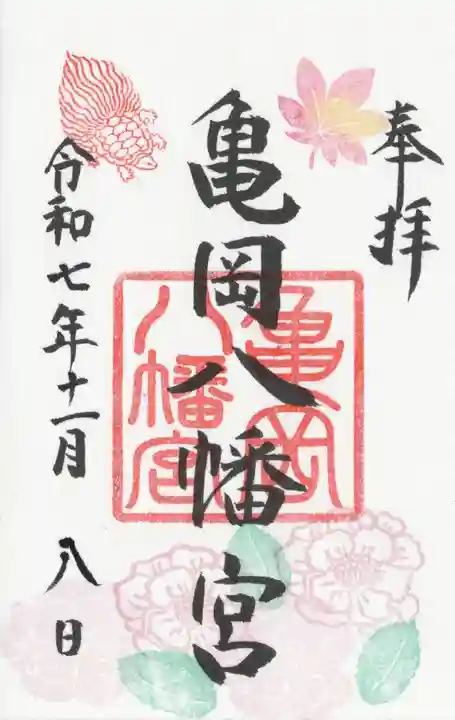 奉拝
亀岡八幡宮
亀岡
八幡宮
令和七年十一月 八日